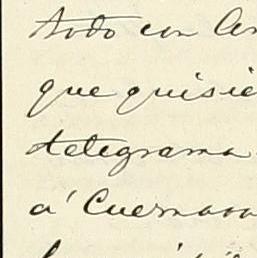 todo con
que quisie
telegrama
á Cuernava